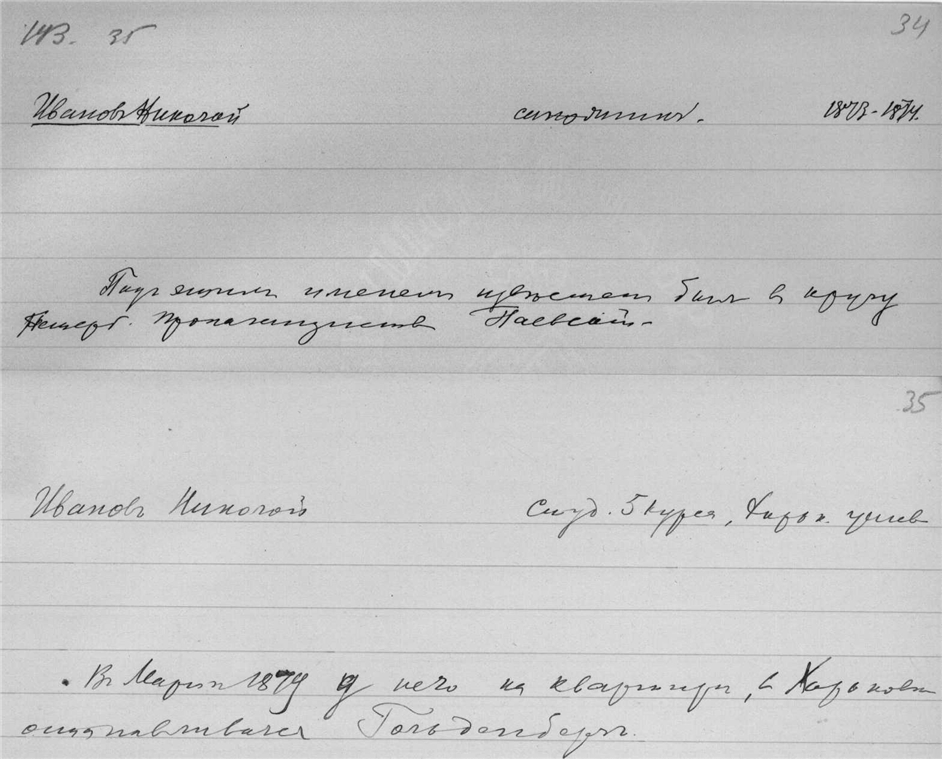 143. 35
34
Ивановъ Николай
1873-1874.
Подъ этимъ именемъ извѣстенъ былъ въ кругу
Петерб. пропагандистовъ Паевский.
35
Ивановъ Николай студ. 5 курса, Харьк. унив
Въ Мартѣ 1879 у него на квартирѣ, въ Харьковѣ
останавливался Гольденбергъ.